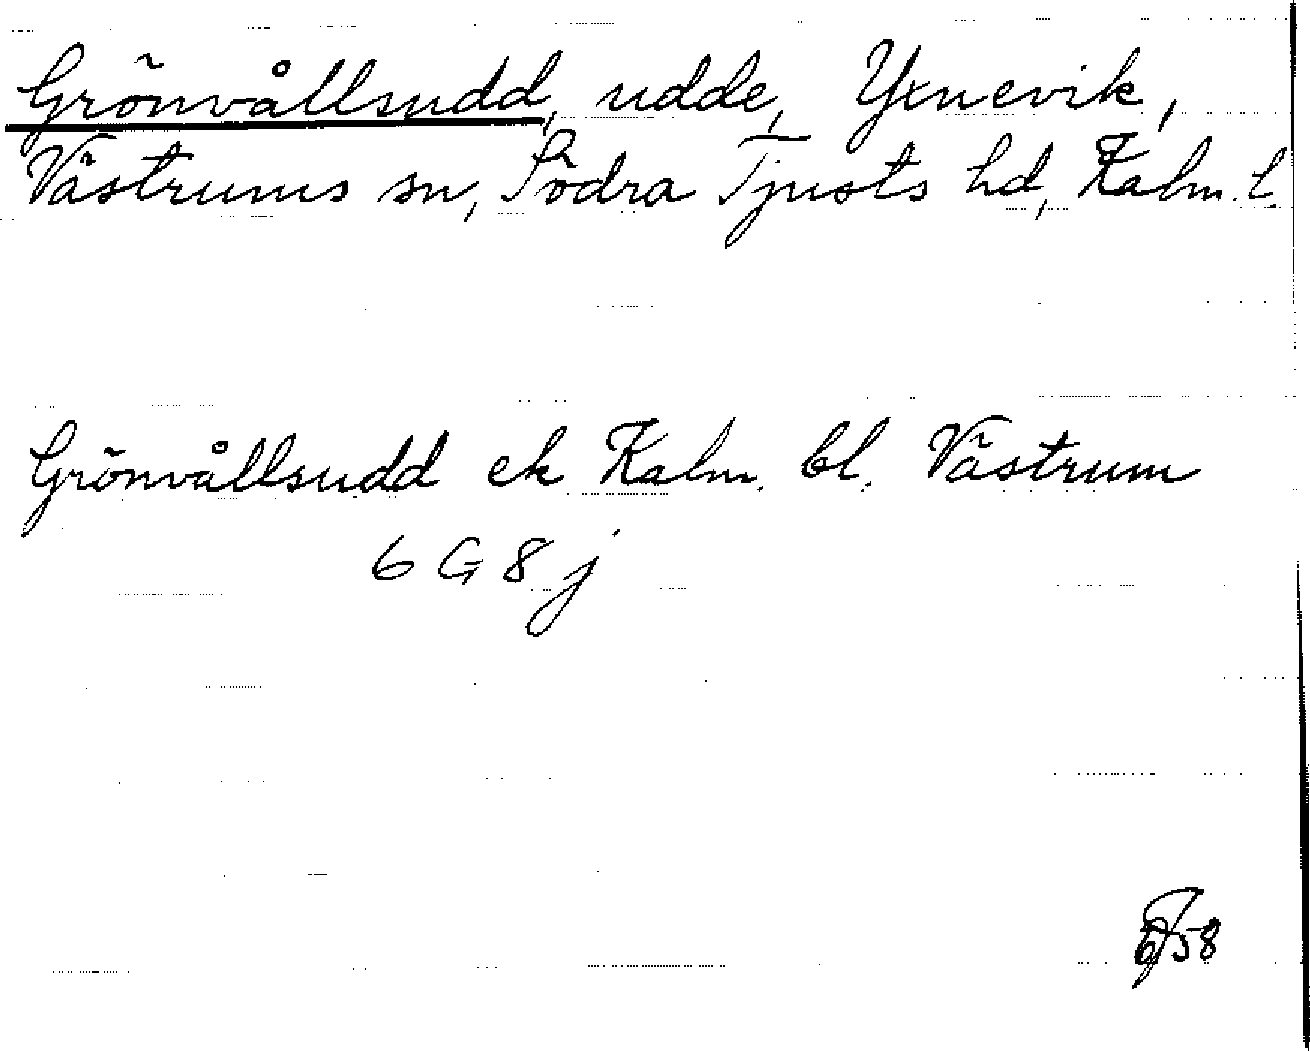 Grönvållsudd, udde, Yxnevik,
Västrums sn, Södra Tjusts hd, Kalm. l.
Grönvållsudd ek Kalm. bl. Västrum
6 G 8 j
58